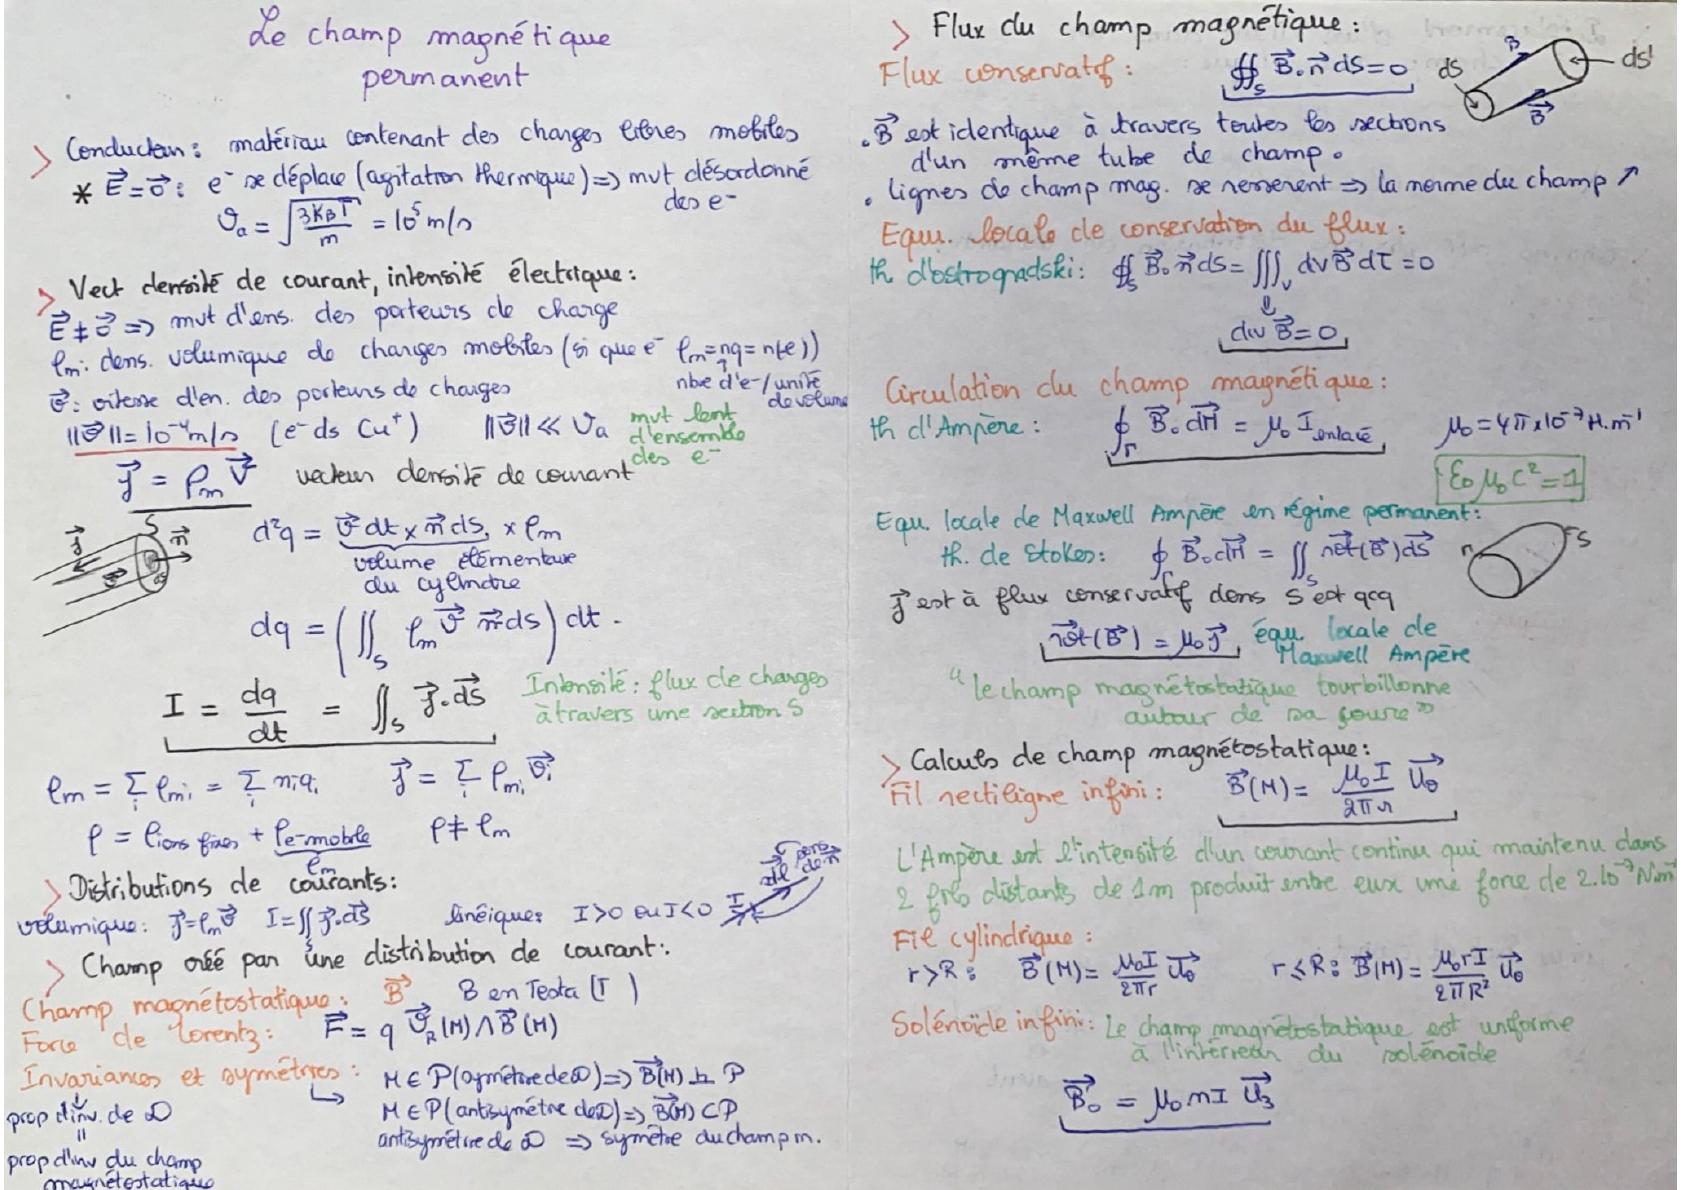 Le champ magnétique
permanent
> Conducteur : matériau contenant des charges libres mobiles
* E⃗ = 0⃗ : e⁻ se déplace (agitation thermique) => mvt désordonné
des e⁻
ϑa = √(3KBT/m) = 10⁵ m/s
> Vect densité de courant, intensité électrique :
E⃗ ≠ 0⃗ => mvt d'ens. des porteurs de charge
ρm : dens. volumique de charges mobiles (si que e⁻ ρm = nq = n(-e))
nbre d'e-/unité
de volume
ϑ⃗ : vitesse d'en. des porteurs de charges
||ϑ⃗|| = 10⁻⁴ m/s (e⁻ ds Cu⁺) ||ϑ⃗|| << ϑa
mvt lent
d'ensemble
des e⁻
j⃗ = ρm V⃗ vecteur densité de courant
j⃗ ϑ⃗ S n⃗ dS
d²q = ϑ⃗ dt × n⃗ dS × ρm
volume élémentaire
du cylindre
dq = (∬S ρm ϑ⃗ n⃗ dS) dt .
I = dq/dt = ∬S j⃗ . dS⃗
Intensité : flux de charges
à travers une section S
ρm = Σi ρmi = Σi niqi j⃗ = Σi ρmi ϑ⃗i
ρ = ρions fixes + ρe-mobile ρ ≠ ρm
ρm
> Distributions de courants :
volumique : j⃗ = ρm ϑ⃗ I = ∬S j⃗ . dS⃗ linéique : I > 0 ou I < 0
I dl⃗ sens de n⃗
> Champ créé par une distribution de courant :
Champ magnétostatique : B⃗ B en Tesla (T )
Force de Lorentz : F⃗ = q ϑ⃗R (M) ∧ B⃗ (M)
Invariances et symétries : M ∈ P (symétrie de D) => B⃗(M) ⊥ P
M ∈ P (antisymétrie de D) => B⃗(M) ⊂ P
antisymétrie de D => symétrie du champ m.
prop d'inv. de D
||
prop d'inv du champ
magnétostatique
> Flux du champ magnétique :
Flux conservatif : ∯S B⃗ . n⃗ dS = 0
dS B⃗ B⃗ dS'
. B⃗ est identique à travers toutes les sections
d'un même tube de champ .
. lignes de champ mag. se resserrent => la norme du champ ↗
Equ. locale de conservation du flux :
th d'ostrogradski : ∯S B⃗ . n⃗ dS = ∭V div B⃗ dτ = 0
⇓
div B⃗ = 0
Circulation du champ magnétique :
th d'Ampère : ∮Γ B⃗ . dM⃗ = μ0 I enlacé μ0 = 4π × 10⁻⁷ H.m⁻¹
ε0 μ0 C² = 1
Equ. locale de Maxwell Ampère en régime permanent :
th. de Stokes : ∮Γ B⃗ . dM⃗ = ∬S rot⃗(B⃗) dS⃗
Γ S
j⃗ est à flux conservatif dons S est qcq
rot⃗(B⃗) = μ0 j⃗ équ. locale de
Maxwell Ampère
"le champ magnétostatique tourbillonne
autour de sa source"
> Calculs de champ magnétostatique :
Fil rectiligne infini : B⃗(M) = μ0 I/2πr U⃗θ
L'Ampère est l'intensité d'un courant continu qui maintenu dans
2 fils distants de 1m produit entre eux une force de 2.10⁻⁷ N.m⁻¹
Fil cylindrique :
r > R : B⃗(M) = μ0I/2πr U⃗θ r ⩽ R : B⃗(M) = μ0rI/2πR² U⃗θ
Solénoïde infini : Le champ magnétostatique est uniforme
à l'intérieur du solénoïde
B⃗0 = μ0 n I U⃗z